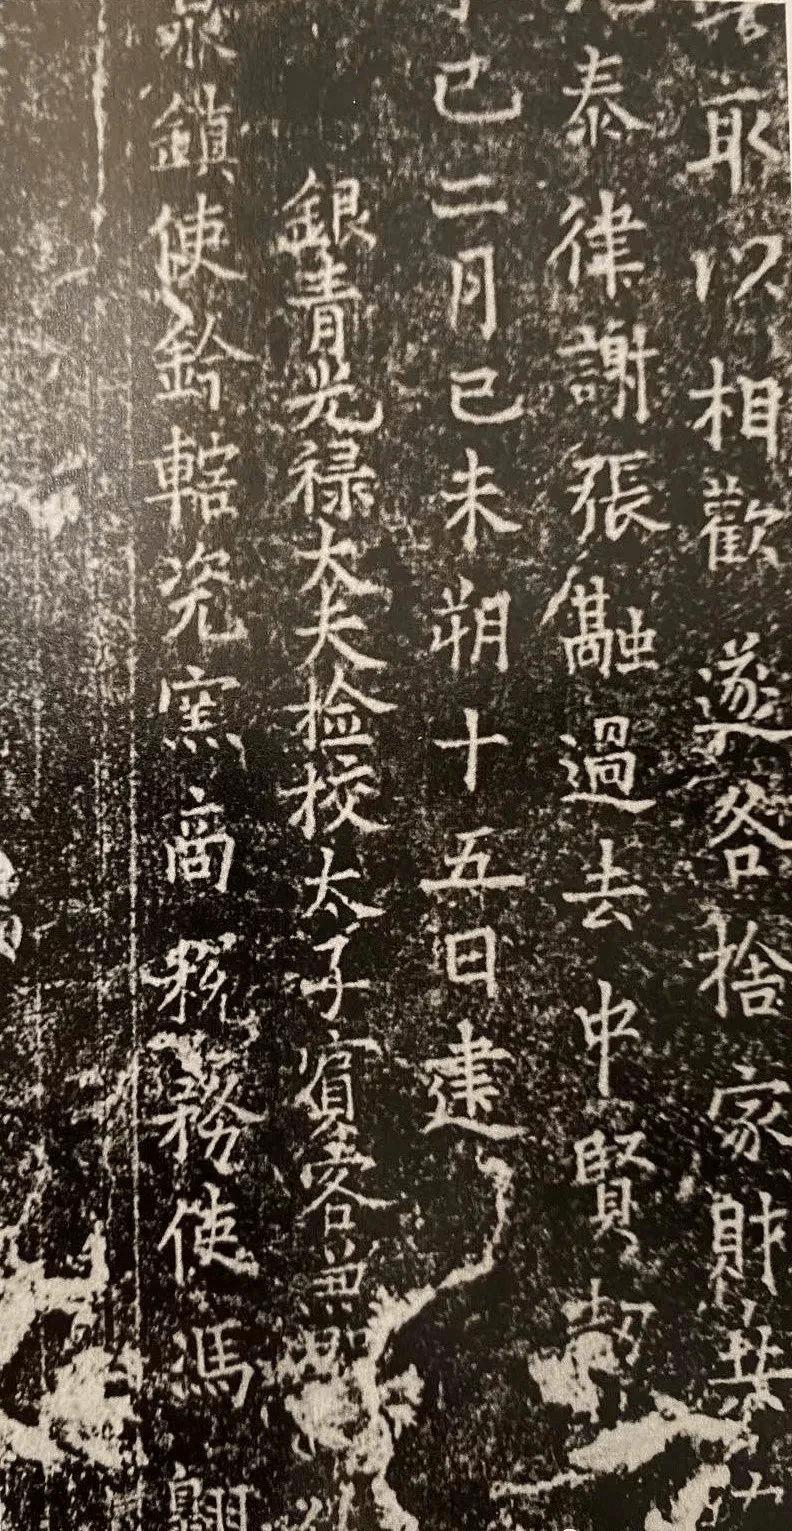 取以相歡遂各捨家財共
泰律謝張融過去中賢劫
巳二月己未朔十五日建
銀青光禄大夫檢校太子賓客兼
鎮使鈐轄瓷窯商稅務使馮翺